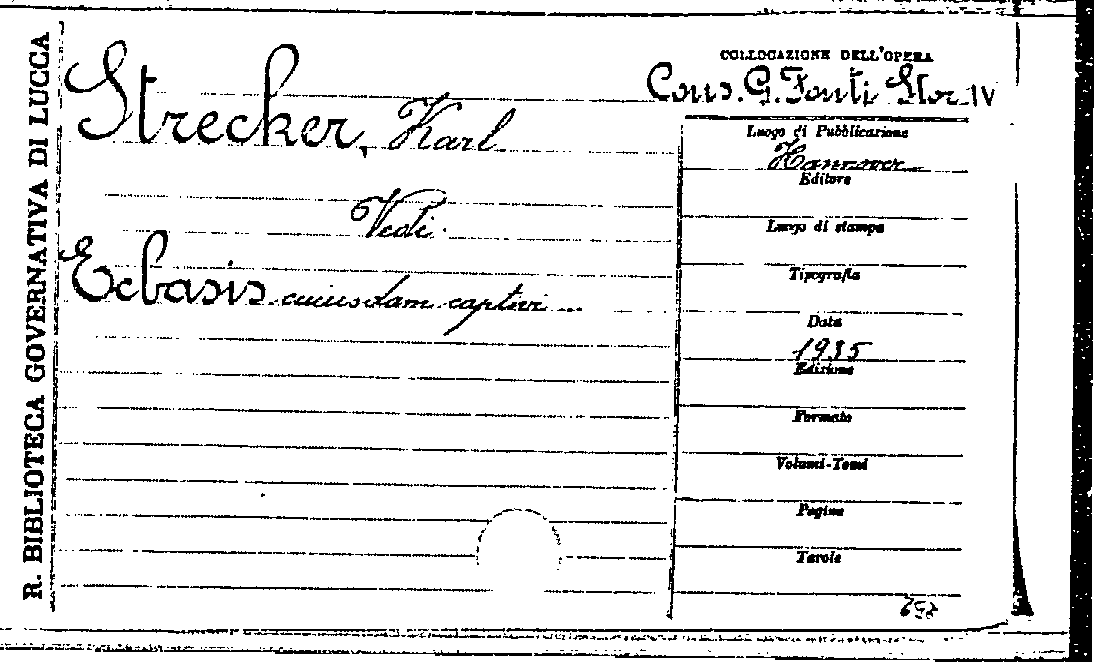 R. BIBLIOTECA GOVERNATIVA DI LUCCA
Strecker, Karl
Vedi
Ecbasis cuiusdam captivi...
COLLOCAZIONE DELL'OPERA
Cons. G. Fonti Stor. IV
Luogo di Pubblicazione
Hannover
Editore
Luogo di stampa
Tipografia
Data
1935
Edizione
Formato
Volumi-Tomi
Pagine
Tavole